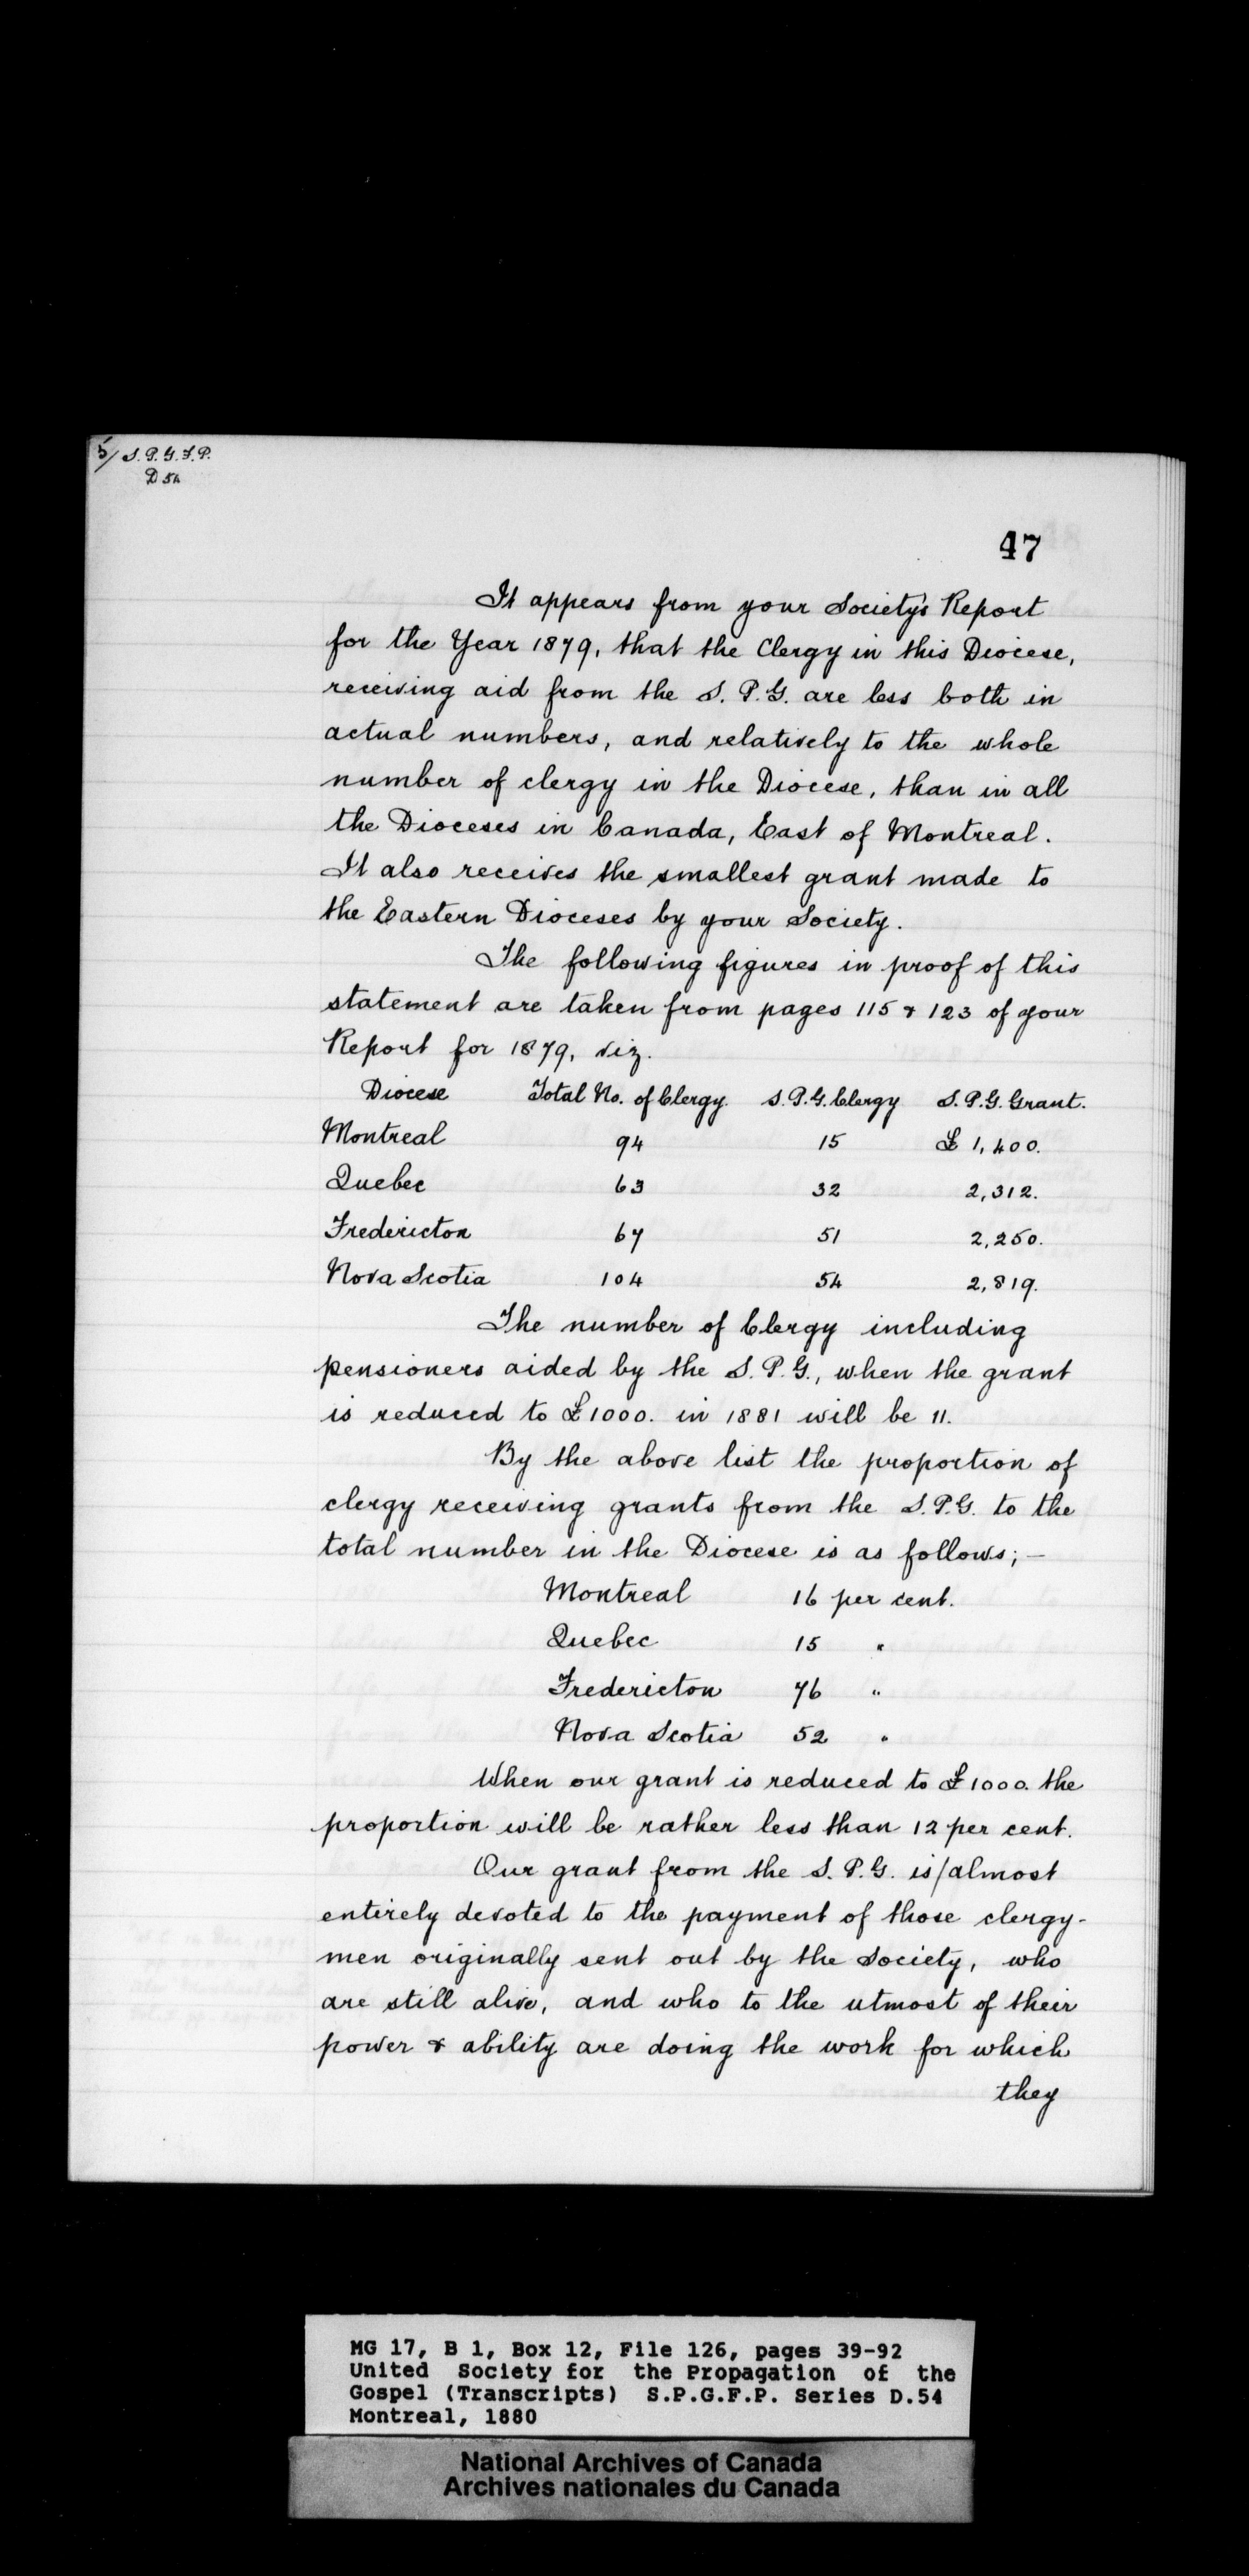 5/ S.P.G.F.P.
D 54
47
It appears from your Society's Report
for the Year 1879, that the Clergy in this Diocese,
receiving aid from the S. P. G. are less both in
actual numbers, and relatively to the whole
number of clergy in the Diocese, than in all
the Dioceses in Canada, East of Montreal.
It also receives the smallest grant made to
the Eastern Dioceses by your Society.
The following figures in proof of this
statement are taken from pages 115 & 123 of your
Report for 1879, viz.
Diocese Total No. of Clergy. S.P.G. Clergy S.P.G. Grant.
Montreal 94 15 £ 1,400.
Quebec 63 32 2,312.
Fredericton 67 51 2,250.
Nova Scotia 104 54 2,819.
The number of Clergy including
pensioners aided by the S. P. G., when the grant
is reduced to £1000. in 1881 will be 11.
By the above list the proportion of
clergy receiving grants from the S.P.G. to the
total number in the Diocese is as follows; —
Montreal 16 per cent.
Quebec 15 "
Fredericton 76 "
Nova Scotia 52 "
When our grant is reduced to £1000. the
proportion will be rather less than 12 per cent.
Our grant from the S. P. G. is/almost
entirely devoted to the payment of those clergy-
men originally sent out by the Society, who
are still alive, and who to the utmost of their
power & ability are doing the work for which
they
MG 17, B 1, Box 12, File 126, pages 39-92
United Society for the Propagation of the
Gospel (Transcripts) S.P.G.F.P. Series D.54
Montreal, 1880
National Archives of Canada
Archives nationales du Canada